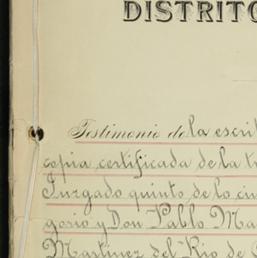 DISTRITO
Testimonio de la escri
copia certificada de la t
Juzgado quinto de lo ci
gorio y Don Pablo Ma
Martinez del Rio de